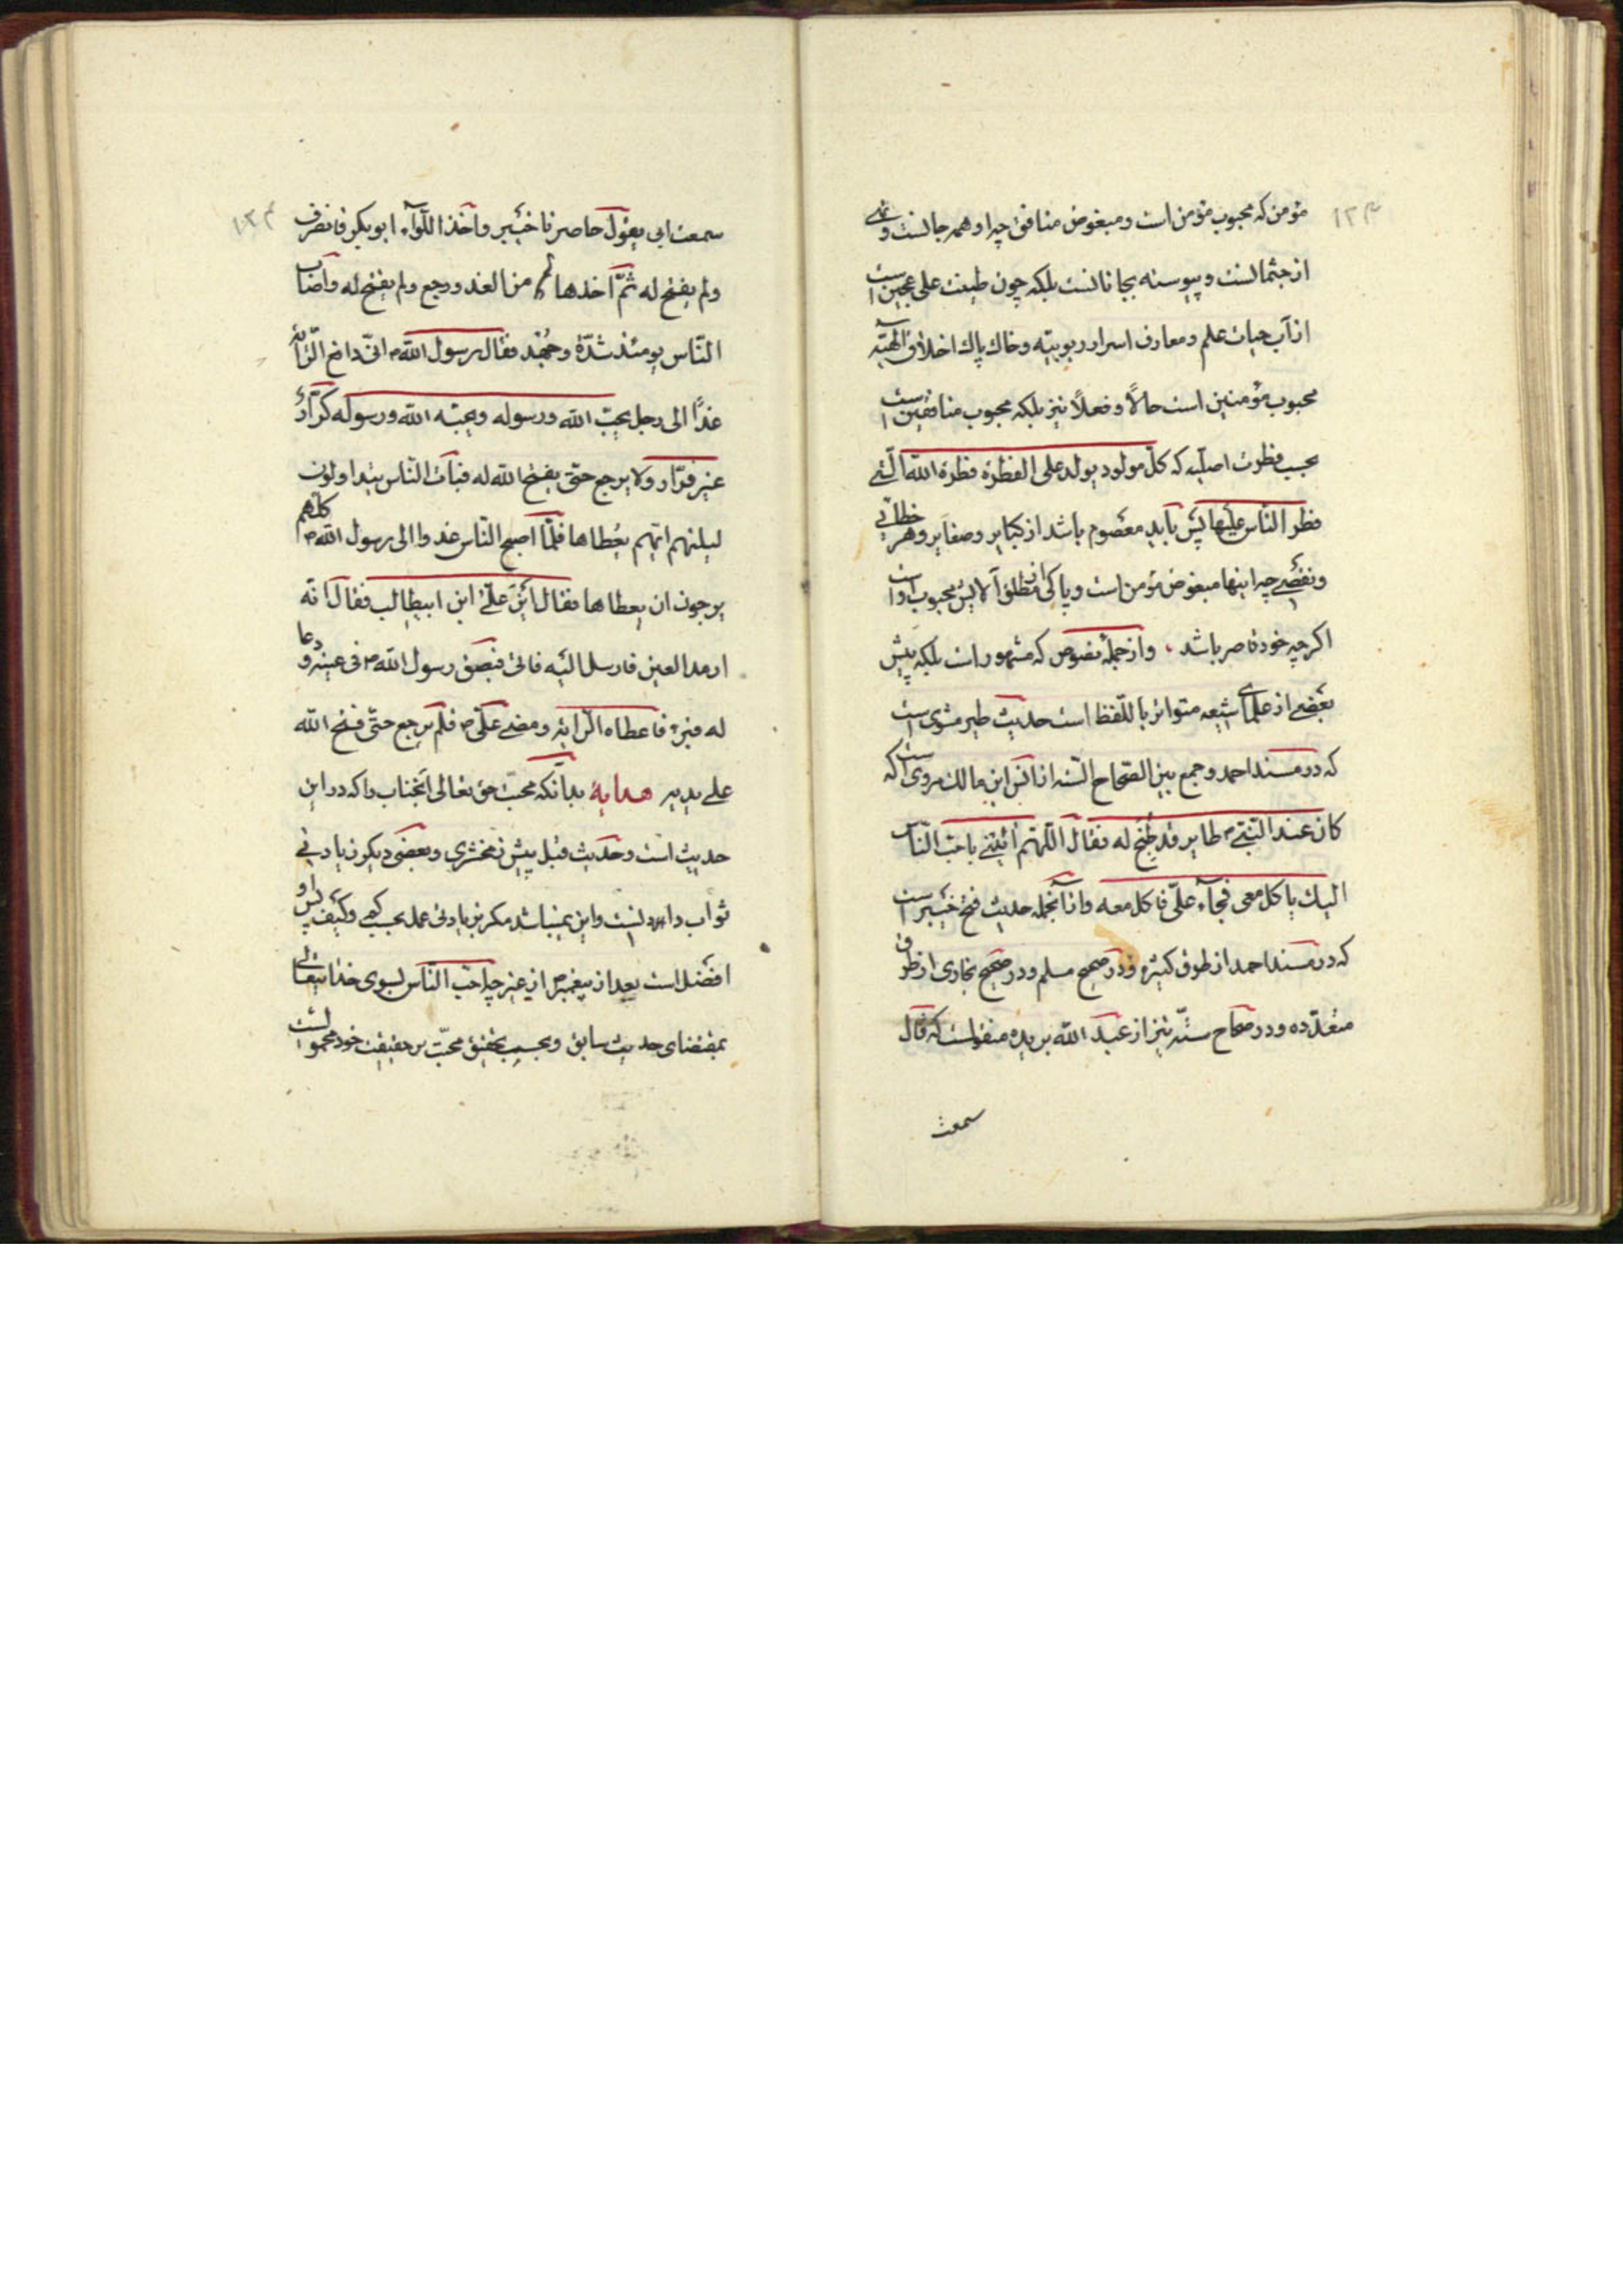 مؤمن که محبوب مؤمن است و مبغوض منافق چه او همه جا نست و
از جثمانست و پیوسته بجانانست بلکه چون طینت علی عجین است
از آب حیات علم و معارف اسرار ربوبیّه و خاک پاک اخلاق الهیّه
محبوب مؤمنین است حالاً و فعلاً نیز بلکه محبوب منافقین است
بحسب فطرت اصلیّه که کلّ مولود یولد علی الفطرة فطرة الله الّتی
فطر النّاس علیها پس باید معصوم باشد از کبایر و صغایر و هر خطائی
و نقصی چه اینها مبغوض مؤمن است و پاکی از مطلق آلایش محبوب اوست
اکرچه خود قاصر باشد ، و از جمله نصوص که مشهور است بلکه پیش
بعضی از علمای شیعه متواتر باللّفظ است حدیث طیر مشوی است
که در مسند احمد و جمع بین الصّحاح السّته از انس ابن مالک مروی است که
کان عند النّبی ص طایر قد طبخ له فقال اللّهمّ ائتنی باحبّ النّاس
الیک یاکل معی فجآء علیّ فاکل معه و از آنجمله حدیث فتح خیبر است
که در مسند احمد از طرق کثیره و در صحیح مسلم و در صحیح بخاری از طرق
متعدّده و در صحاح ستّه نیز از عبد الله بریده منقولست که قال
سمعت
سمعت ابی یقول حاصرنا خیبر و اخذ اللّوآء ابو بکر فانصرف
ولم یفتح له ثمّ اخذها من الغد و رجع ولم یفتح له و اصاب
النّاس یومئذ شدّة و جهد فقال رسول الله ص انّی دافع الرّایة
غدًا الی رجل یحبّ الله و رسوله و یحبّه الله و رسوله کرّار
غیر فرّار ولا یرجع حتّی یفتح الله له فبات النّاس یتداولون
لیلتهم ایّهم یعطاها فلمّا اصبح النّاس غدوا الی رسول الله ص کلّهم
یرجون ان یعطاها فقال این علیّ ابن ابیطالب فقال انّه
ارمد العین فارسل الیه فاتی فبصق رسول الله ص فی عینه و دعا
له فبرء فاعطاه الرّایة و مضی علیّ ص فلم یرجع حتّی فتح الله
علی یدیه هدایة بدانکه محبّت حق تعالی آنجناب را که در این
حدیث است و حدیث قبل پیش زمخشری و بعضی دیکر زیادتی
ثواب دادنست و این نمیباشد مکر بزیادتی عمل بحسب کمی و کیف پس او
افضل است بعد از پیغمبر ص از غیر چه احبّ النّاس بسوی خدایتعالی
بمقتضای حدیث سابق و بحسب تحقیق محبّت بر حقیقت خود محمولست